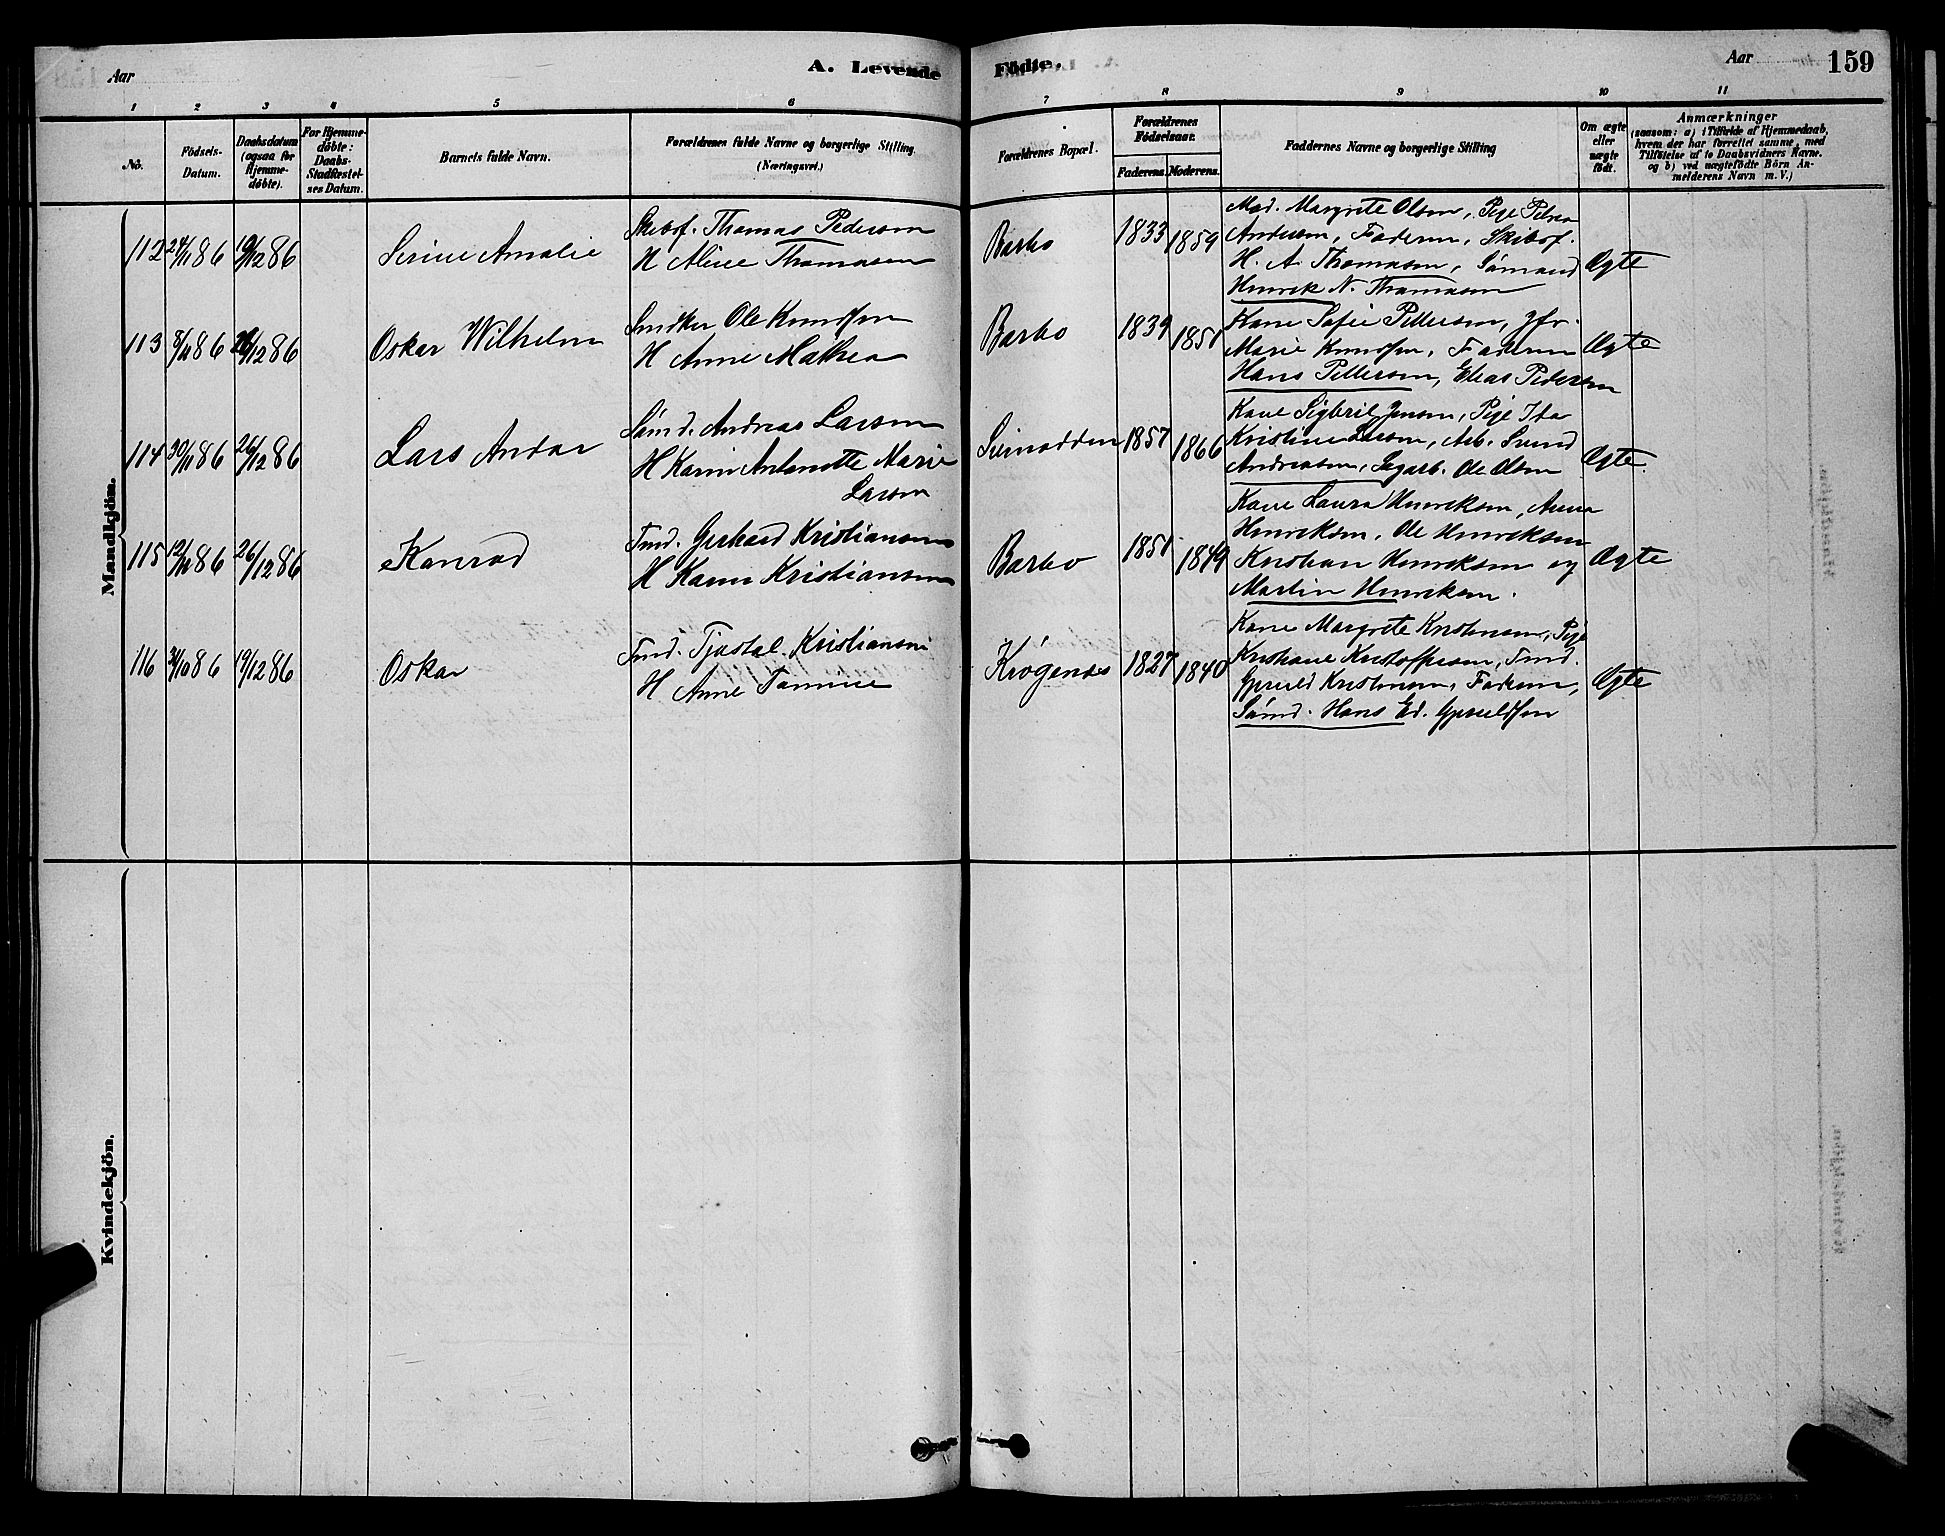 Aar
A. Levende
Födte.
Aar
159
1 2 3 4 5 6 7 8 9 10 11
No.
Födsels-Datum.
Daabsdatum (ogsaa for Hjemmedöbte).
For Hjemmedöbte: Daabs-Stadfæstelses Datum.
Barnets fulde Navn.
Forældrenes fulde Navne og borgerlige Stilling
(Næringsvei.)
Forældrenes Bopæl.
Forældrenes Födselsaar.
Faderens. Moderens.
Faddernes Navne og borgerlige Stilling
Om ægte eller uægte födt.
Anmærkninger
(saasom: a) i Tilfælde af Hjemmedaab,
hvem der har forrettet samme, med
Tilföielse af to Daabsvidners Navne.
og b) ved uægtefödte Börn An-
melderens Navn m. V.)
Mandkjön.
112 24/11 86 19/12 86 Serine Amalie
Skibsf. Thomas Pedersen
H Aline Thomasen
Barbo 1833 1859
Mad. Margrete Olsen, Pige Petrea
Andersen, Faderen, Skibsf.
H. A. Thomasen, Sømand
Henrik N. Thomasen
Ægte
113 86 26/12 86 Oskar Wilhelm
Snedker Ole Knudsen
H Anne Mathea
Barbo 1839 1851
Kone Sofie Pettersen, Jfr.
Marie Knudsen, Faderen
Hans Pettersen, Elias Pedersen
Ægte
114 20/11 86 26/12 86 Lars Andar
Sømd. Andreas Larsen
H Karin Antonette Marie
Larsen
1857 1866
Kone Sigbril Jensen, Pige Ida
Kristine Larsen, Arb. Svend
Andreasen, Ole Olsen
Ægte.
115 86 26/12 86 Konrad
Tmd. Gerhard Kristiansen
H Karen Kristiansen
Barbo 1851 1849
Kone Laura Henriksen, Anna
Henriksen, Ole Henriksen
Kristian Henriksen og
Martin Henriksen.
Ægte
116 86 19/12 86 Oskar
Tmd. Tjøstel Kristiansen
H Anne Tomine
Krøgenes 1827 1840
Kone Margrete Kristensen, Pige
Kristiane Kristoffersen, Tmd.
Gjeruld Kristensen, Faderen,
Sømd. Hans Ed. Gjeruldsen
Ægte
Kvindekjön.